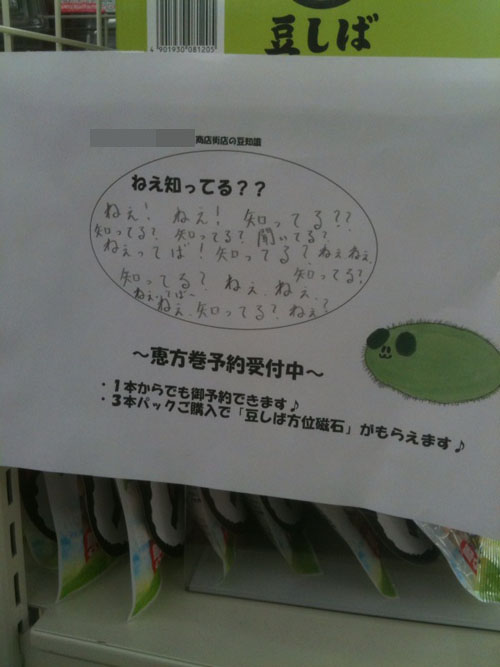 豆しば
4 901930 081205
商店街店の豆知識
ねえ知ってる??
ねぇ! ねぇ! 知ってる??
知ってる? 知ってる? 聞いてる?
ねぇってば! 知ってる? ねぇ ねぇ
知ってる? ねぇ. ねぇ. 知ってる?
ねぇ.てばー
ねぇ. 知ってる? ねぇ?
〜恵方巻予約受付中〜
・1本からでも御予約できます♪
・3本パックご購入で「豆しば方位磁石」がもらえます♪